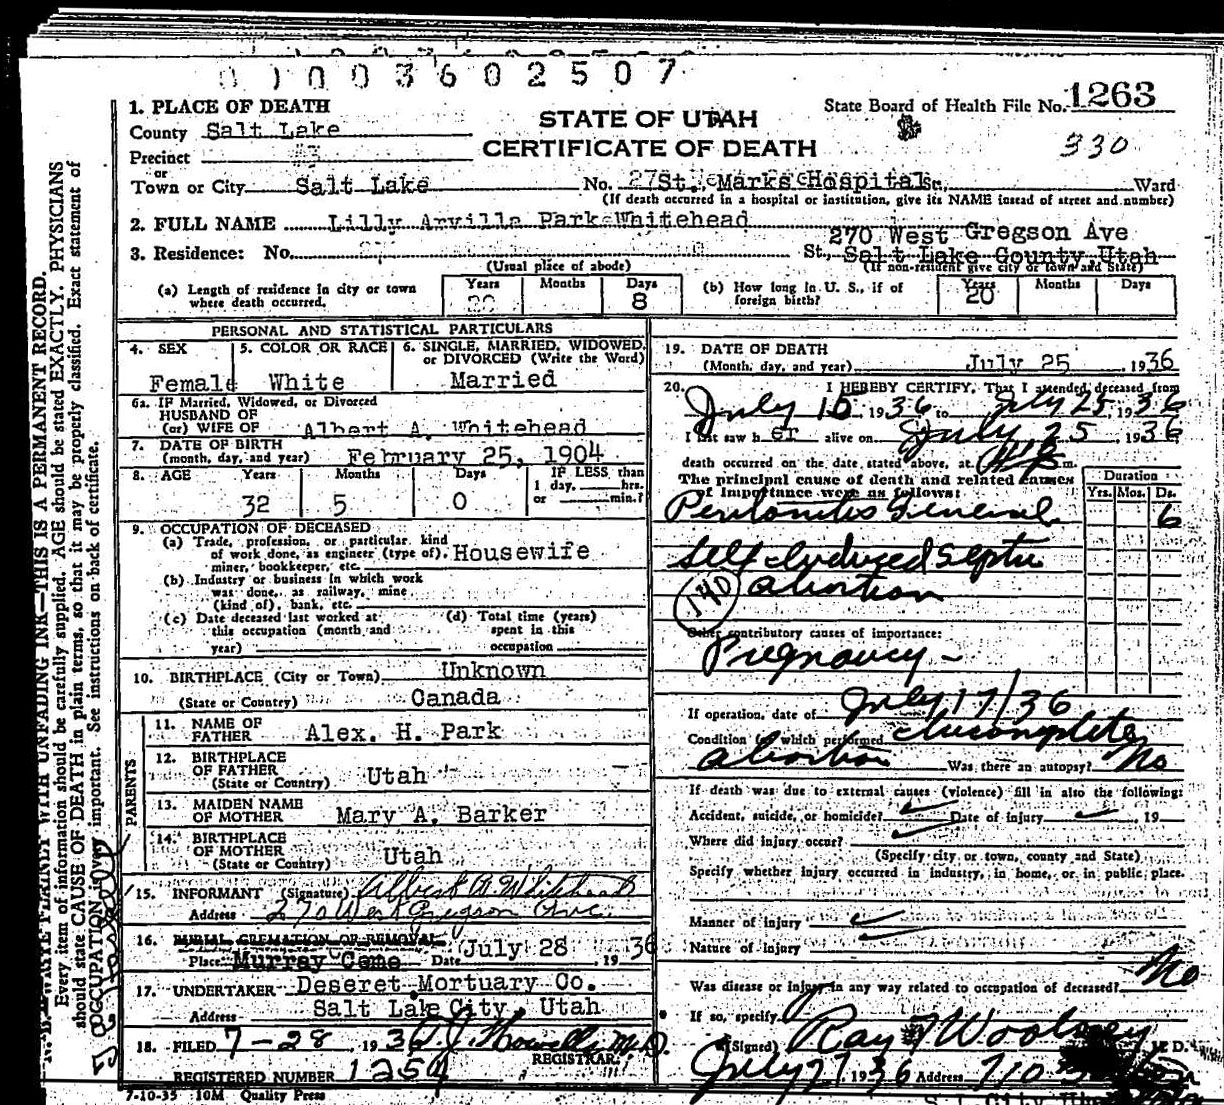 01003602507
1. PLACE OF DEATH
State Board of Health File No. 1263
County Salt Lake
STATE OF UTAH
330
Precinct
CERTIFICATE OF DEATH
or
Town or City Salt Lake No. St. Marks Hospital St., Ward
(If death occurred in a hospital or institution, give its NAME instead of street and number)
2. FULL NAME Lilly Arvilla Park Whitehead
270 West Gregson Ave
3. Residence: No. St., Salt Lake County, Utah
(Usual place of abode) (If non-resident give city or town and State)
(a) Length of residence in city or town where death occurred. Years Months Days 8
(b) How long in U. S., if of foreign birth? Years 20 Months Days
PERSONAL AND STATISTICAL PARTICULARS
4. SEX 5. COLOR OR RACE 6. SINGLE, MARRIED, WIDOWED, or DIVORCED (Write the Word)
Female White Married
6a. IF Married, Widowed, or Divorced
HUSBAND OF
(or) WIFE OF Albert A. Whitehead
7. DATE OF BIRTH
(month, day, and year) February 25, 1904
8. AGE Years Months Days IF LESS than
1 day, hrs.
32 5 0 or min.?
9. OCCUPATION OF DECEASED
(a) Trade, profession, or particular kind
of work done, as engineer (type of), Housewife
miner, bookkeeper, etc.
(b) Industry or business in which work
was done, as railway, mine
(kind of), bank, etc.
(c) Date deceased last worked at
this occupation (month and
year)
(d) Total time (years)
spent in this
occupation
10. BIRTHPLACE (City or Town) Unknown
(State or Country) Canada
PARENTS
11. NAME OF
FATHER Alex. H. Park
12. BIRTHPLACE
OF FATHER Utah
(State or Country)
13. MAIDEN NAME
OF MOTHER Mary A. Barker
14. BIRTHPLACE
OF MOTHER Utah
(State or Country)
15. INFORMANT (Signature) Albert A Whitehead
Address 270 West Gregson Ave.
16. BURIAL CREMATION OR REMOVAL
Place Murray Ceme Date July 28 1936
17. UNDERTAKER Deseret Mortuary Co.
Address Salt Lake City, Utah
18. FILED 7-28 1936 Howells M.D.
REGISTRAR.
REGISTERED NUMBER 1254
7-10-35 10M Quality Press
19. DATE OF DEATH
(Month, day, and year) July 25, 1936
20. I HEREBY CERTIFY, That I attended deceased from
July 15 1936 to July 25 1936
I last saw her alive on July 25 1936
death occurred on the date stated above, at m.
The principal cause of death and related causes
of importance were as follows:
Duration
Yrs. Mos. Ds.
Peritonitis General 6
Self Induced Septic
140 abortion
Other contributory causes of importance:
Pregnancy
If operation, date of July 17/36
Condition for which performed Incomplete
abortion Was there an autopsy? No
If death was due to external causes (violence) fill in also the following:
Accident, suicide, or homicide? Date of injury 19
Where did injury occur?
(Specify city or town, county and State)
Specify whether injury occurred in industry, in home, or in public place.
Manner of injury
Nature of injury
Was disease or injury in any way related to occupation of deceased? No
If so, specify
(Signed) Ray T Woolsey M.D.
July 27 1936 Address 710
N. B. WRITE PLAINLY WITH UNFADING INK—THIS IS A PERMANENT RECORD.
Every item of information should be carefully supplied. AGE should be stated EXACTLY. PHYSICIANS
should state CAUSE OF DEATH in plain terms, so that it may be properly classified. Exact statement of
OCCUPATION is very important. See instructions on back of certificate.